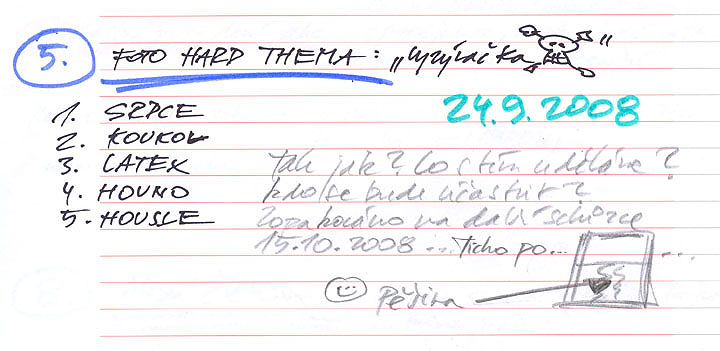 5. FOTO HARD THEMA: „Vyzývačka"
24.9.2008
1. SRDCE
2. KOUKOL
3. LATEX
4. HOVNO
5. HOUSLE
Tak jak? Co s tím uděláme?
Kdo se bude účastnit?
Zopakováno na další schůzce
15.10.2008 ... Ticho po... ...
Pěšina